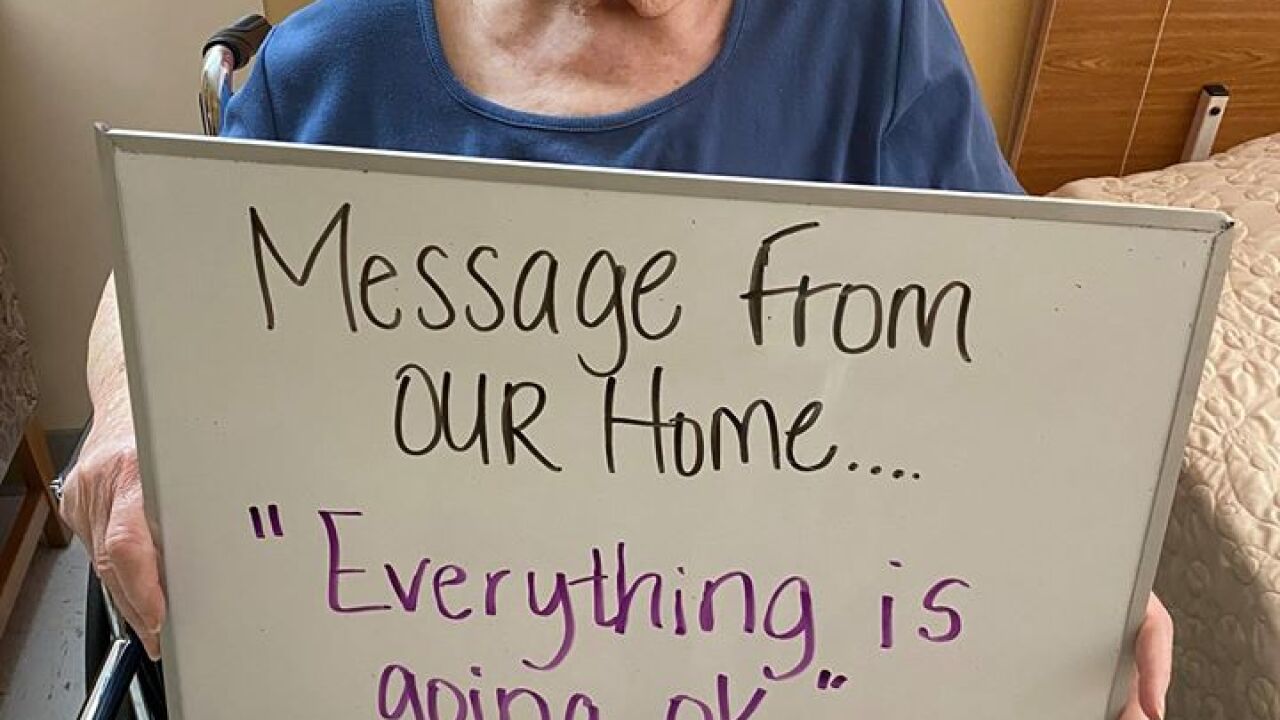 Message From
OUR Home....
"Everything is
going ok"